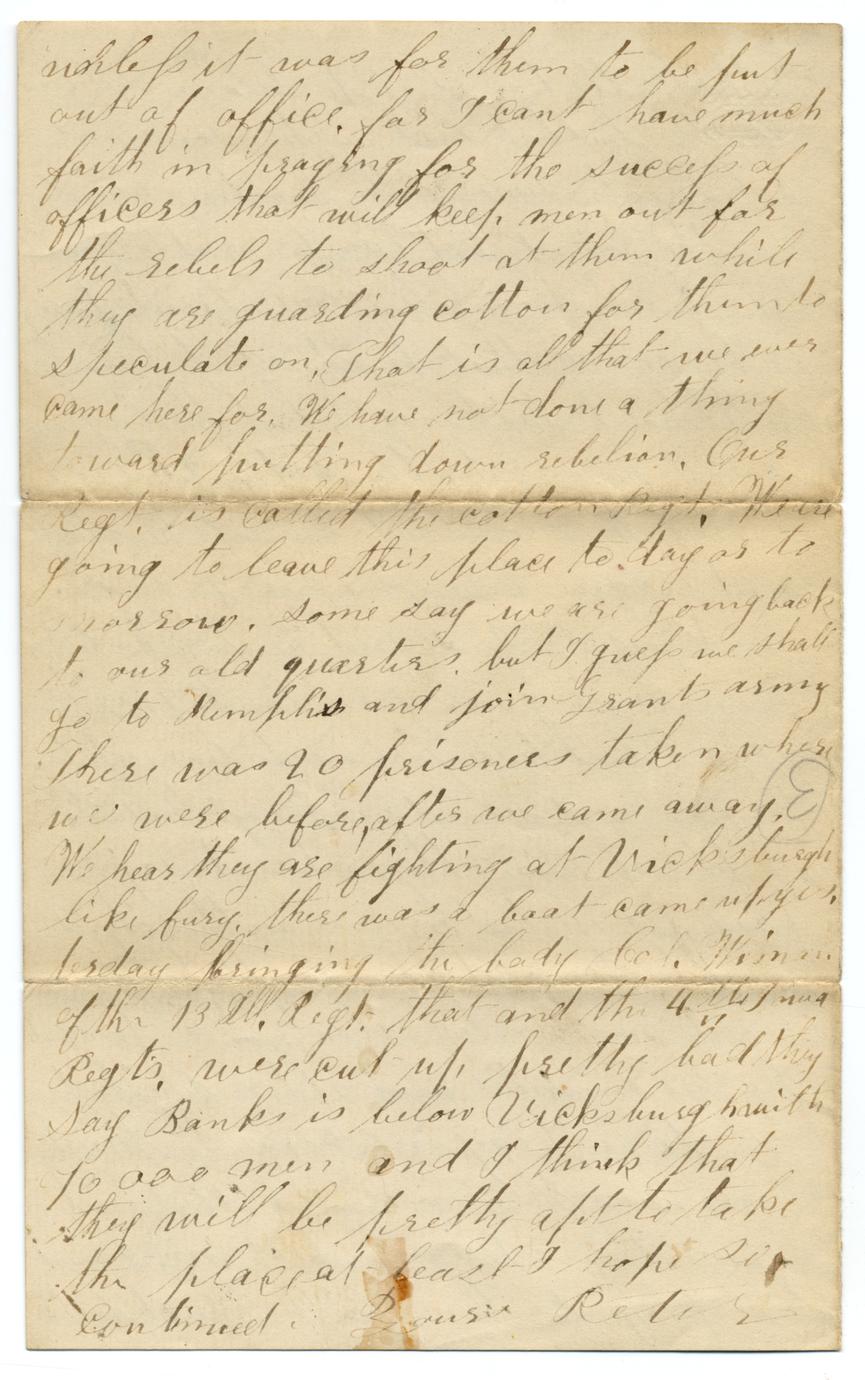 unless it was for them to be put
out of office. for I cant have much
faith in praying for the success of
officers that will keep men out for
the rebels to shoot at them while
they are guarding cotton for them to
speculate on, That is all that we ever
came here for. We have not done a thing
toward putting down rebelion. Our
Regt. is called the cotton Regt. We are
going to leave this place to day or to
morrow. some say we are going back
to our old quarters. but I guess we shall
go to Memphis and join Grants army
There was 20 prisoners taken where
we were before, after we came away.
E
We hear they are fighting at Vicksburgh
like fury. there was a boat came up yes.
terday bringing the body Col. Wiman
of the 13 Ill. Regt. that and the 4th Iowa
Regts. were cut up pretty bad they
say Banks is below Vicksburgh with
70000 men and I think that
they will be pretty apt to take
the place at least I hope so
Continued.